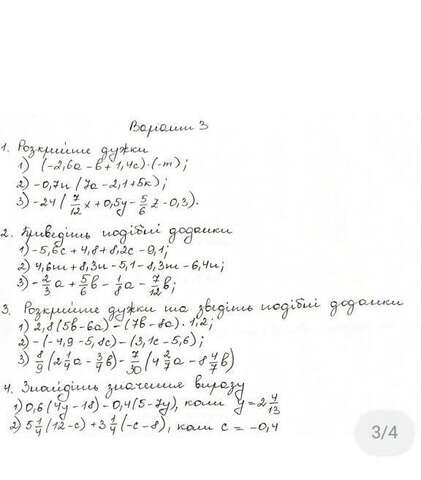 Варіант 3
1. Розкрийте дужки
1) (-2,6a - b + 1,4c)·(-m);
2) -0,7n (7a - 2,1 + 5k);
3) -24 ( 7/12 x + 0,5y - 5/6 z - 0,3).
2. Зведіть подібні доданки
1) -5,6c + 4,8 + 8,2c - 9,1;
2) 4,6m + 8,3n - 5,1 - 8,3m - 6,4n;
3) - 2/3 a + 5/6 b - 1/8 a - 7/12 b;
3. Розкрийте дужки та зведіть подібні доданки
1) 2,8(5b - 6a) - (7b - 8a)·1,2;
2) -(-4,9 - 5,8c) - (3,1c - 5,6);
3) 8/9 (2 1/4 a - 3/4 b) - 7/30 (4 2/7 a - 8 4/7 b)
4. Знайдіть значення виразу
1) 0,6(4y - 18) - 0,4(5 - 7y), коли y = 2 4/13
2) 5 1/4 (12 - c) + 3 1/4 (-c - 8), коли c = -0,4
3/4